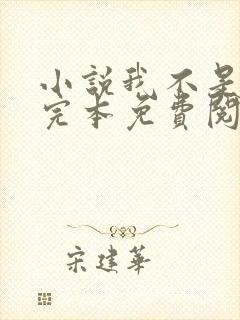 小說我不是
完本免費閱
宋建華